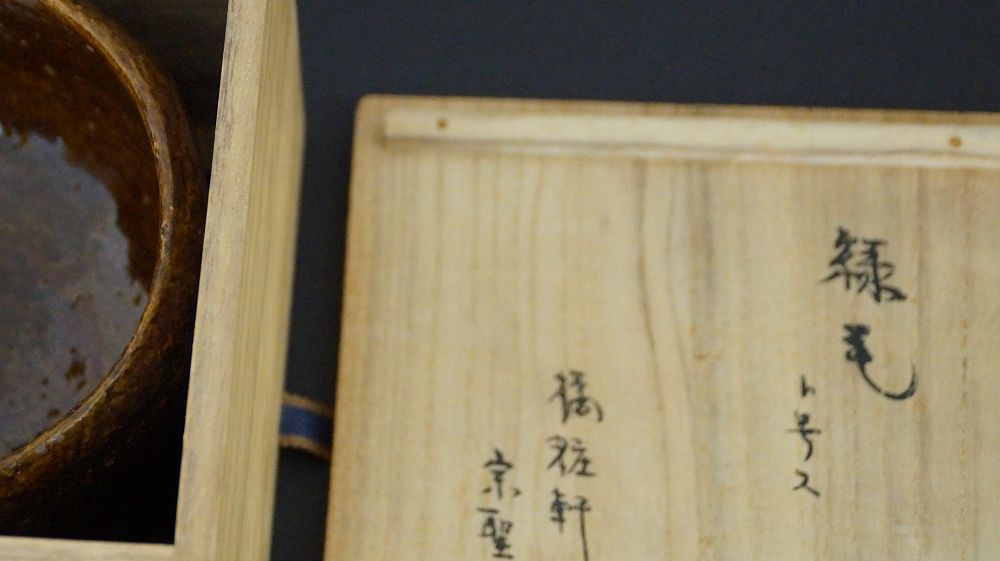 緑毛
ト号ス
軒
宗聖